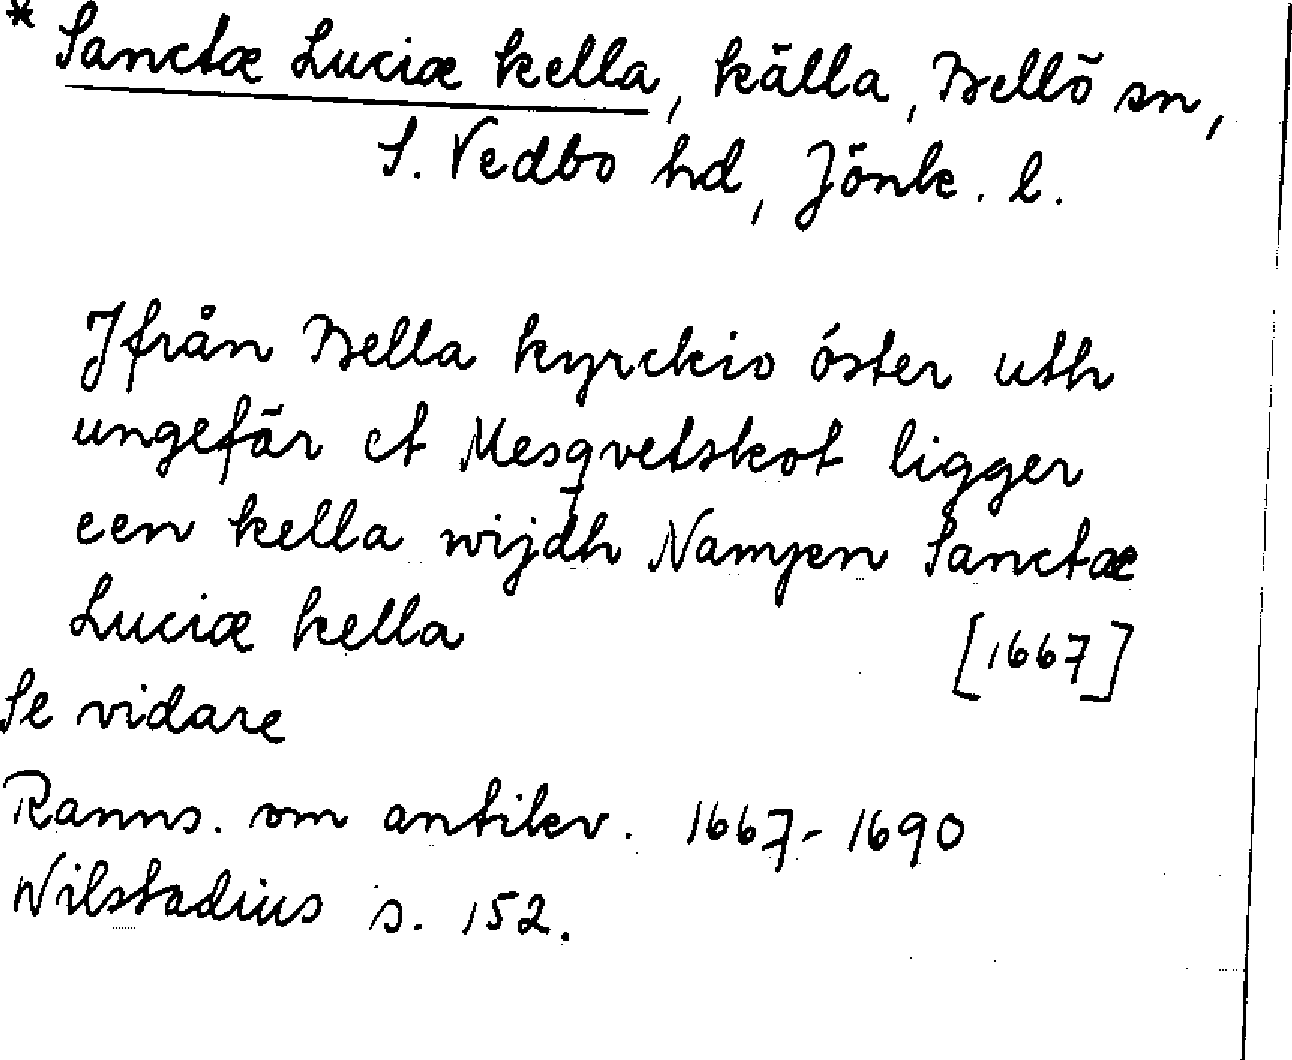 * Sanctæ Luciæ kella, källa, Bellö sn,
S. Vedbo hd, Jönk. l.
Jfrån Bella kyrckio öster uth
ungefär et Mesqvetskot ligger
een kella wijdh Nampen Sanctæ
Luciæ kella [1667]
Se vidare
Ranns. om antikv. 1667-1690
Nilstadius s. 152.